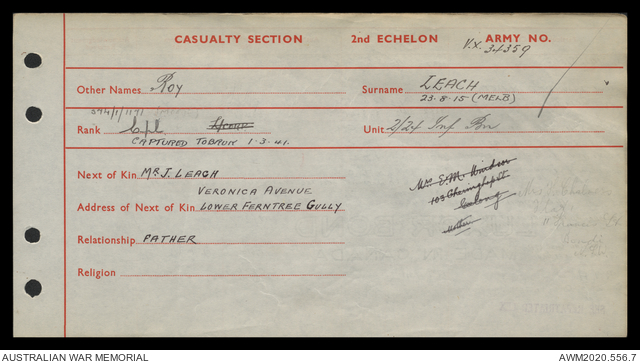 CASUALTY SECTION 2nd ECHELON ARMY NO.
Vx. 34359
Other Names Roy Surname LEACH
23-8-15 (MELB)
Rank Cpl Unit 2/24 Inf Bn
CAPTURED TOBRUK 1-3-41.
Next of Kin MR J. LEACH
VERONICA AVENUE
Address of Next of Kin LOWER FERNTREE GULLY
Relationship FATHER
Religion
Mrs E.M.
103
Geelong
Mother
AUSTRALIAN WAR MEMORIAL AWM2020.556.7